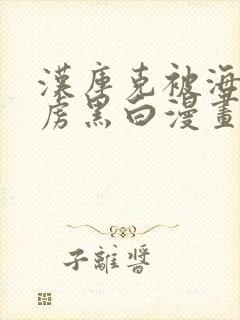 漢庫克被海
虏黑白漫畫
子離醬